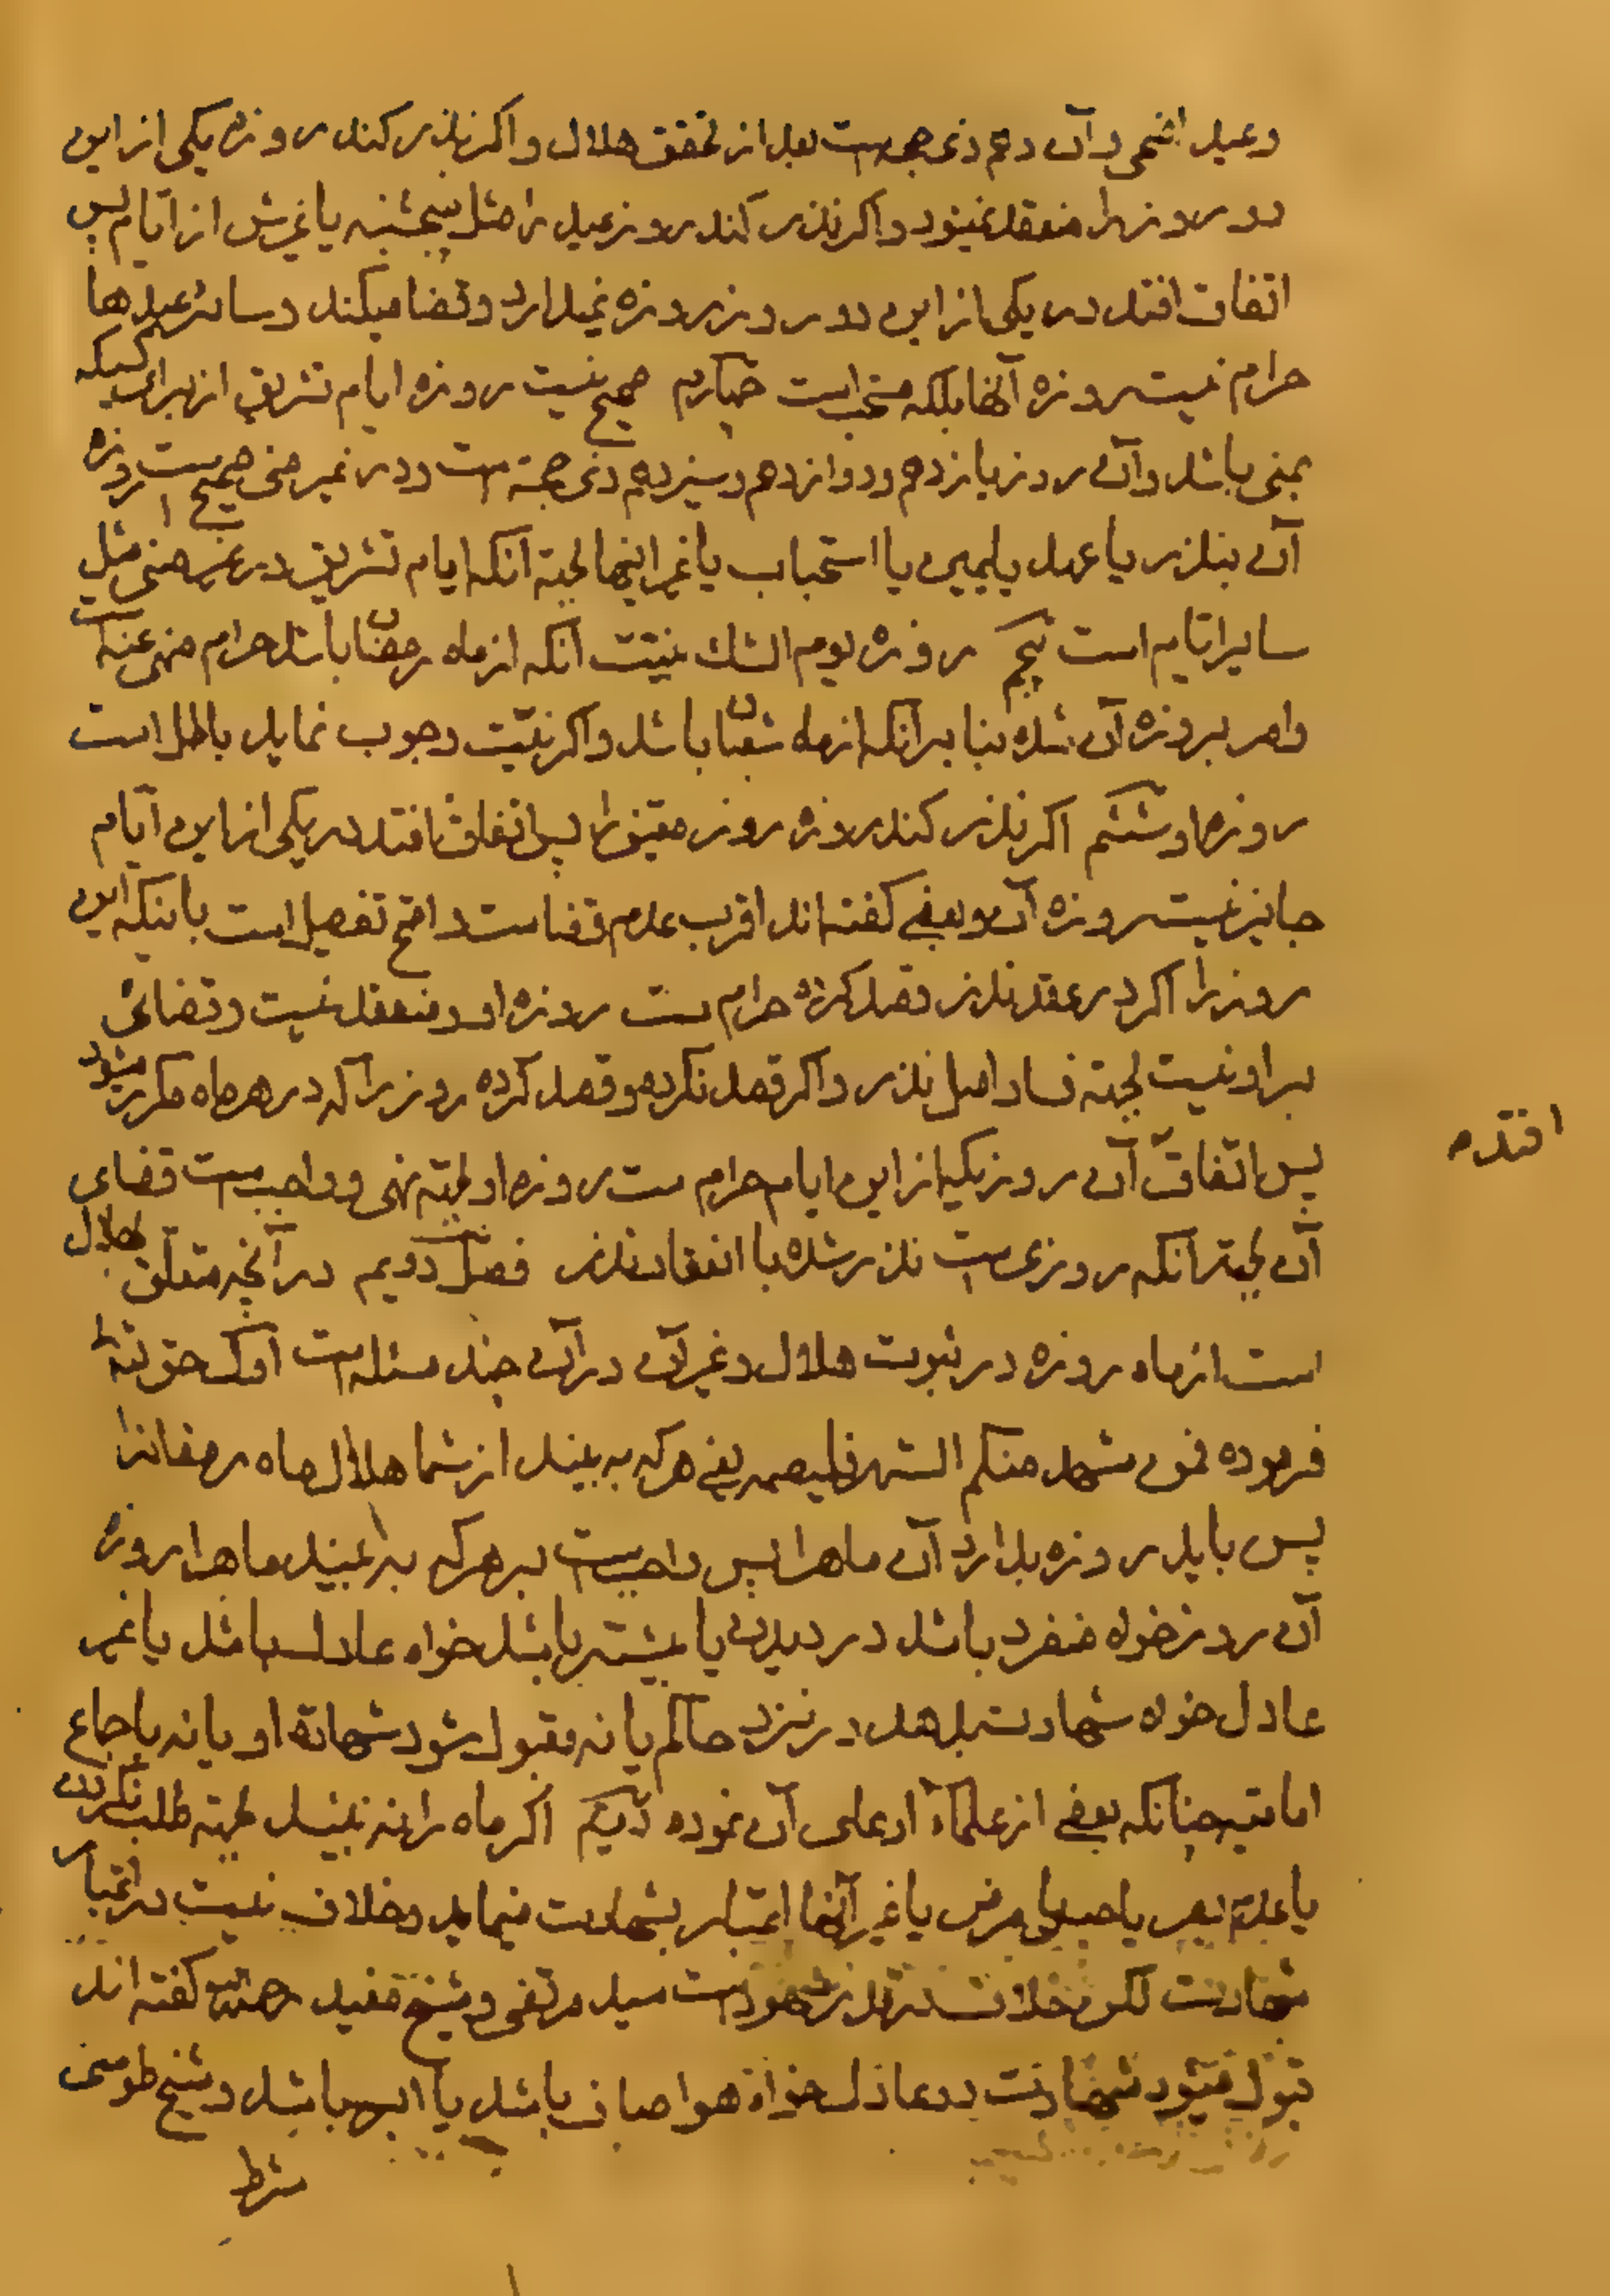 وعید اضحی و آن دهم ذی حجه است بعد از تحقق هلال و اکر نذر کند روزه یکی از این
دو روز را منعقد نمیشود و اکر نذر کند روز عید را مثل پنجشنبه یا غیرش از ایام پس
اتفاق افتد در یکی از این دو روز روزه نمیدارد و قضا میکند و سائر عیدها
حرام نیست روزه آنها بلکه مستحب است چهارم صحیح نیست روزه ایام تشریق از برای کسیکه
بمنی باشد و آن روز یازدهم و دوازدهم و سیزدهم ذی حجة است و در غیر منی صحیح است روزه
آن بنذر یا عهد یا یمین یا استحباب یا غیر اینها لجهة آنکه ایام تشریق در غیر منی مثل
سایر ایام است پنجم روزه یوم الشک بنیت آنکه از ماه رمضان باشد حرام منهی عنه است
وامر بروزه آن شده بنا بر آنکه از ماه شعبان باشد و اکر نیّت وجوب نماید باطل است
روزه او ششم اکر نذر کند روزه روز معین را پس اتفاق افتد در یکی از این ایام
جایز نیست روزه آن و بعضی کفته اند اقرب عدم قضا است و اصح تفصیل است باینکه این
روز را اکر در عقد نذر قصد کرده حرام است روزه او و منعقد نیست و قضائی
بر او نیست لجهة فساد اصل نذر و اکر قصد نکرده و قصد کرده روز را که در هر ماه مکرر میشود
پس اتفاق آن روز یکی از این ایام حرام است روزه او لجهة نهی و واجب است قضای
افتد
آن لجهة آنکه روزی است نذر شده با انعقاد نذر فصل دویم در آنچه متعلق بهلال
است از ماه روزه در ثبوت هلال و غیر آن در آن چند مسئله است اول حق تعالی
فرموده فمن شهد منکم الشهر فلیصمه یعنی هر که به بیند از شما هلال ماه رمضان را
پس باید روزه بدارد آن ماه را پس واجب است بر هر که به بیند ماه را روزه
آن روز خواه منفرد باشد در دیدن یا بیشتر باشد خواه عادل باشد یا غیر
عادل خواه شهادت بدهد در نزد حاکم یا نه مقبول شود شهادة او یا نه باجماع
امامیه چنانکه بعضی از علماء ادعای آن نموده دویم اکر ماه را نه بیند لجهة طلب نکردن
یا عدم بصر یا حبس یا مرض یا غیر آنها اعتبار بشهادت مینماید و خلاف نیست در اعتبار
شهادت لکن خلاف در قدر شهود است سید مرتضی و شیخ مفید کفته اند
قبول میشود شهادت دو عادل خواه هوا صاف باشد یا ابر باشد و شیخ طوسی
شرط